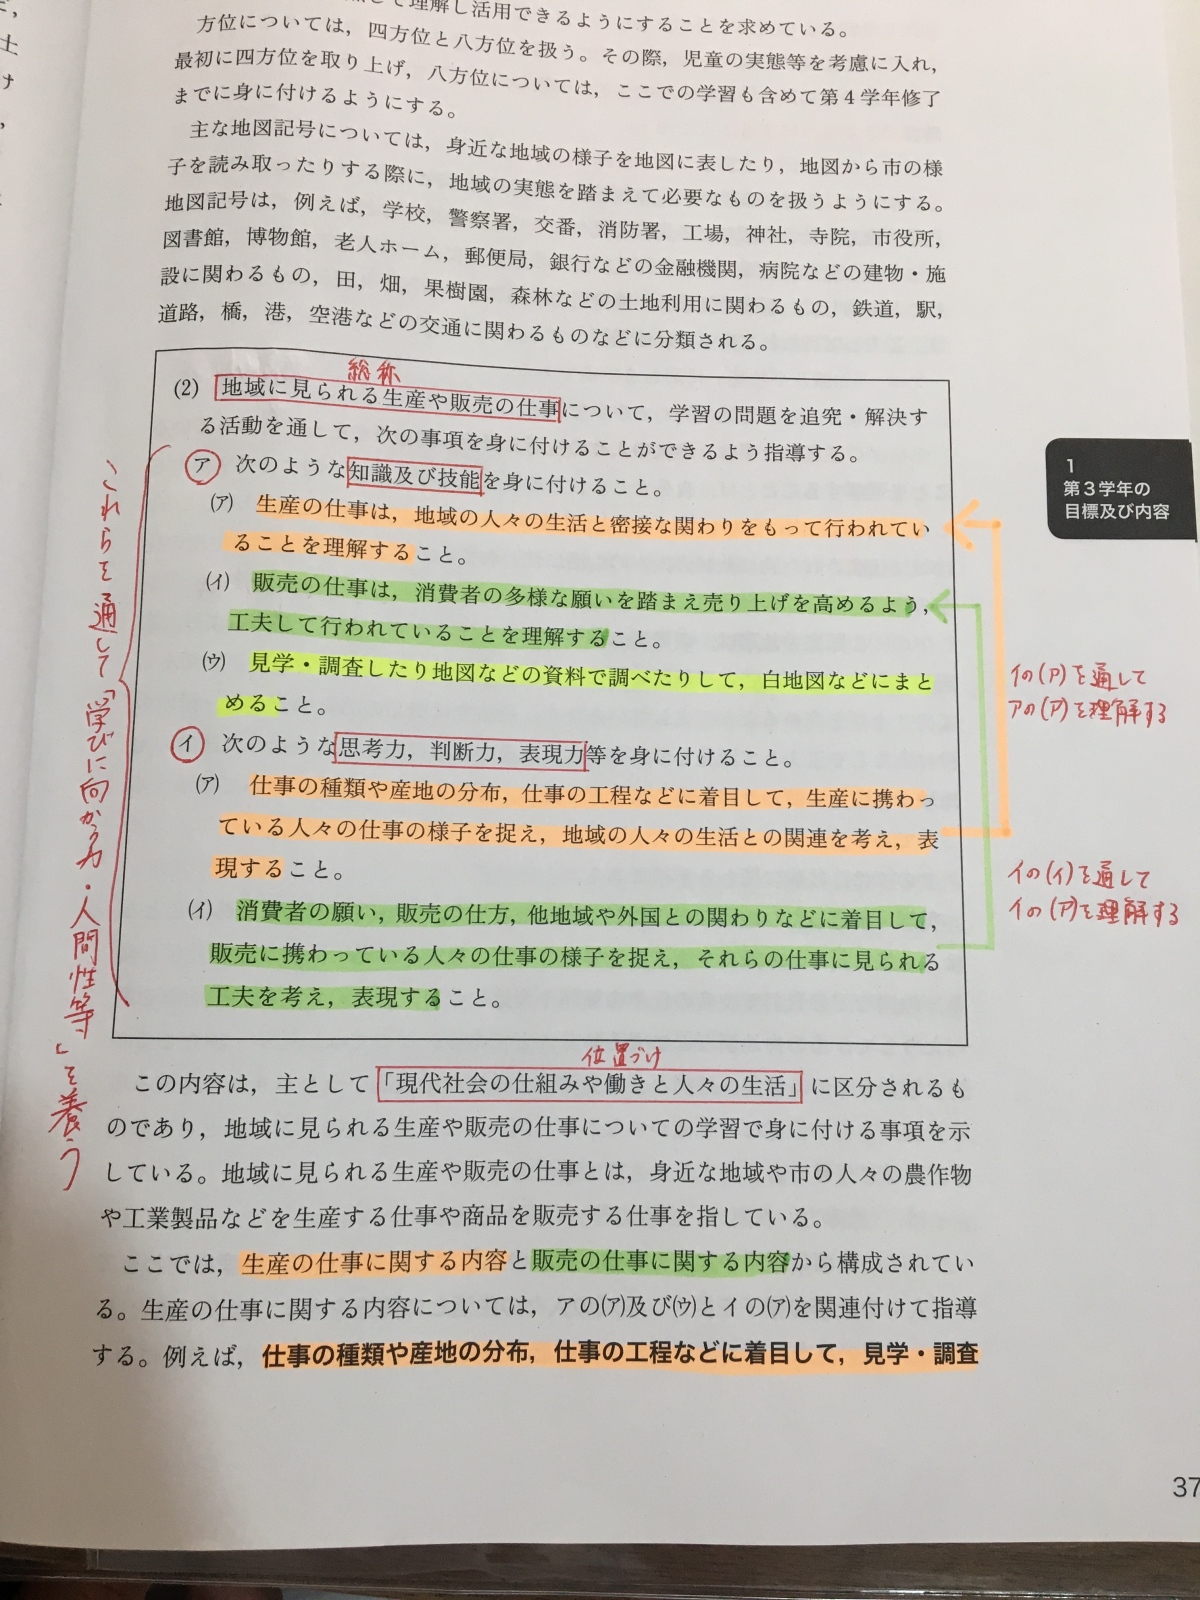 て理解し活用できるようにすることを求めている。
方位については，四方位と八方位を扱う。その際，児童の実態等を考慮に入れ，
最初に四方位を取り上げ，八方位については，ここでの学習も含めて第４学年修了
までに身に付けるようにする。
主な地図記号については，身近な地域の様子を地図に表したり，地図から市の様
子を読み取ったりする際に，地域の実態を踏まえて必要なものを扱うようにする。
地図記号は，例えば，学校，警察署，交番，消防署，工場，神社，寺院，市役所，
図書館，博物館，老人ホーム，郵便局，銀行などの金融機関，病院などの建物・施
設に関わるもの，田，畑，果樹園，森林などの土地利用に関わるもの，鉄道，駅，
道路，橋，港，空港などの交通に関わるものなどに分類される。
総称
(2) 地域に見られる生産や販売の仕事について，学習の問題を追究・解決す
る活動を通して，次の事項を身に付けることができるよう指導する。
ア 次のような知識及び技能を身に付けること。
(ア) 生産の仕事は，地域の人々の生活と密接な関わりをもって行われてい
ることを理解すること。
(イ) 販売の仕事は，消費者の多様な願いを踏まえ売り上げを高めるよう，
工夫して行われていることを理解すること。
(ウ) 見学・調査したり地図などの資料で調べたりして，白地図などにまと
めること。
イ 次のような思考力，判断力，表現力等を身に付けること。
(ア) 仕事の種類や産地の分布，仕事の工程などに着目して，生産に携わっ
ている人々の仕事の様子を捉え，地域の人々の生活との関連を考え，表
現すること。
(イ) 消費者の願い，販売の仕方，他地域や外国との関わりなどに着目して，
販売に携わっている人々の仕事の様子を捉え，それらの仕事に見られる
工夫を考え，表現すること。
これらを通して「学びに向かう力・人間性等」を養う
1
第３学年の
目標及び内容
イの(ア)を通して
アの(ア)を理解する
イの(イ)を通して
イの(ア)を理解する
位置づけ
この内容は，主として「現代社会の仕組みや働きと人々の生活」に区分されるも
のであり，地域に見られる生産や販売の仕事についての学習で身に付ける事項を示
している。地域に見られる生産や販売の仕事とは，身近な地域や市の人々の農作物
や工業製品などを生産する仕事や商品を販売する仕事を指している。
ここでは，生産の仕事に関する内容と販売の仕事に関する内容から構成されてい
る。生産の仕事に関する内容については，アの(ア)及び(ウ)とイの(ア)を関連付けて指導
する。例えば，仕事の種類や産地の分布，仕事の工程などに着目して，見学・調査
37